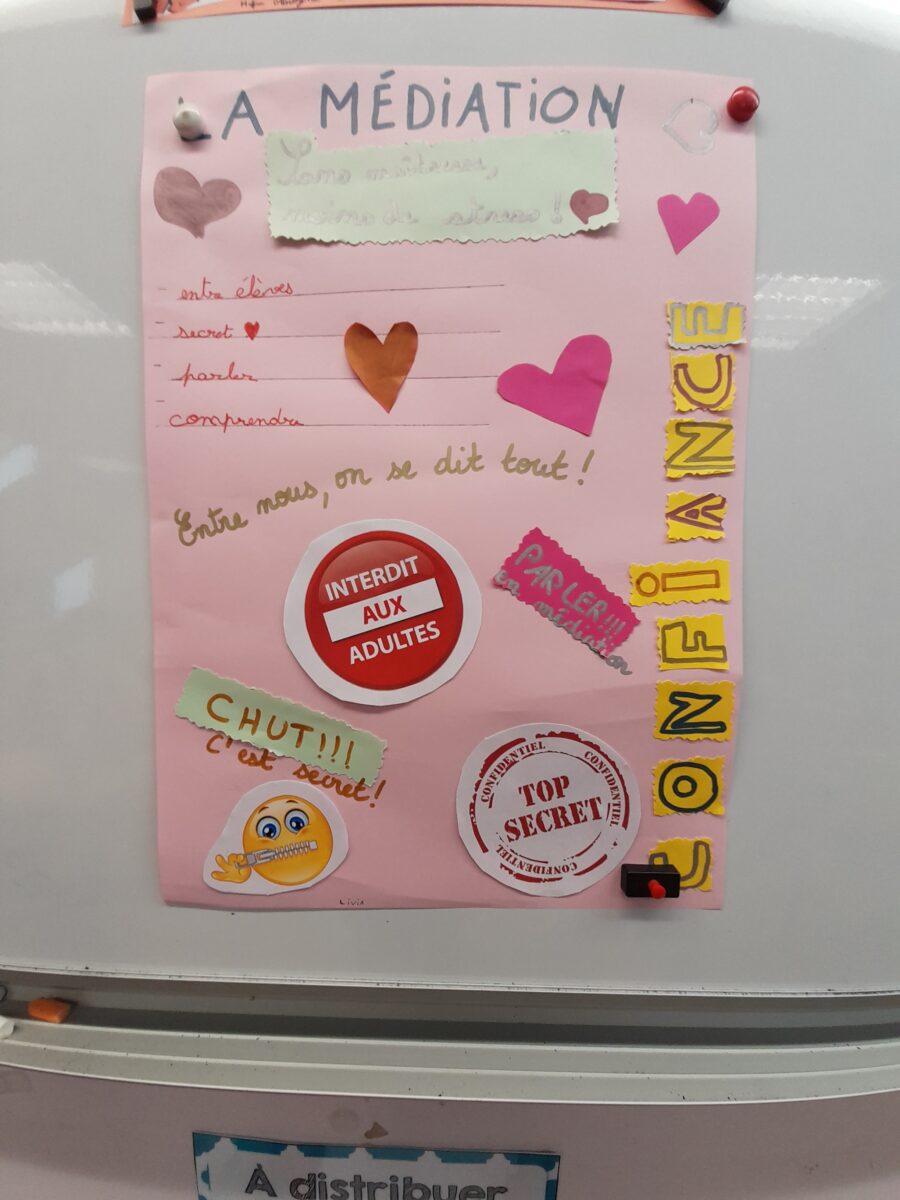 LA MÉDIATION
Sans maîtresses,
moins de stress !
entre élèves
secret
parler
comprendre
Entre nous, on se dit tout !
INTERDIT
AUX
ADULTES
PARLER!!!
en médiation
CHUT!!!
C'est secret!
CONFIDENTIEL
CONFIDENTIEL
TOP
SECRET
CONFIDENTIEL
CONFIANCE
À distribuer